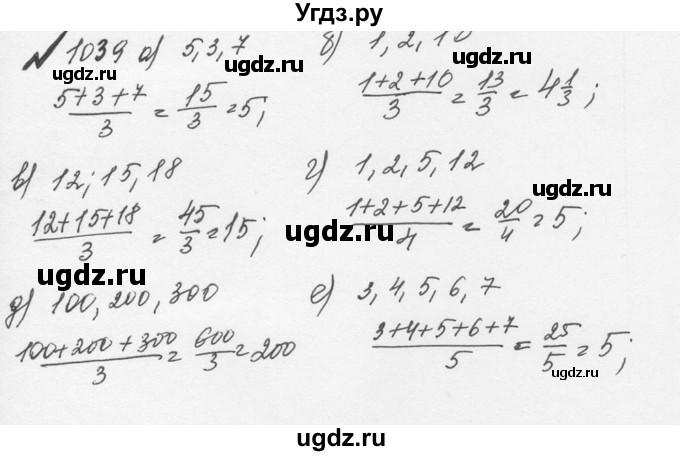 Угдз.ру
№ 1039 а) 5, 3, 7
ugdz.ru
(5+3+7)/3 = 15/3 = 5;
ugdz.ru
б) 1, 2, 10
ugdz.ru
(1+2+10)/3 = 13/3 = 4 1/3;
в) 12; 15, 18
(12+15+18)/3 = 45/3 = 15;
ugdz.ru
г) 1, 2, 5, 12
ugdz.ru
(1+2+5+12)/4 = 20/4 = 5;
ugdz.ru
д) 100, 200, 300
(100+200+300)/3 = 600/3 = 200
ugdz.ru
е) 3, 4, 5, 6, 7
ugdz.ru
(3+4+5+6+7)/5 = 25/5 = 5;
ugdz.ru
ugdz.ru